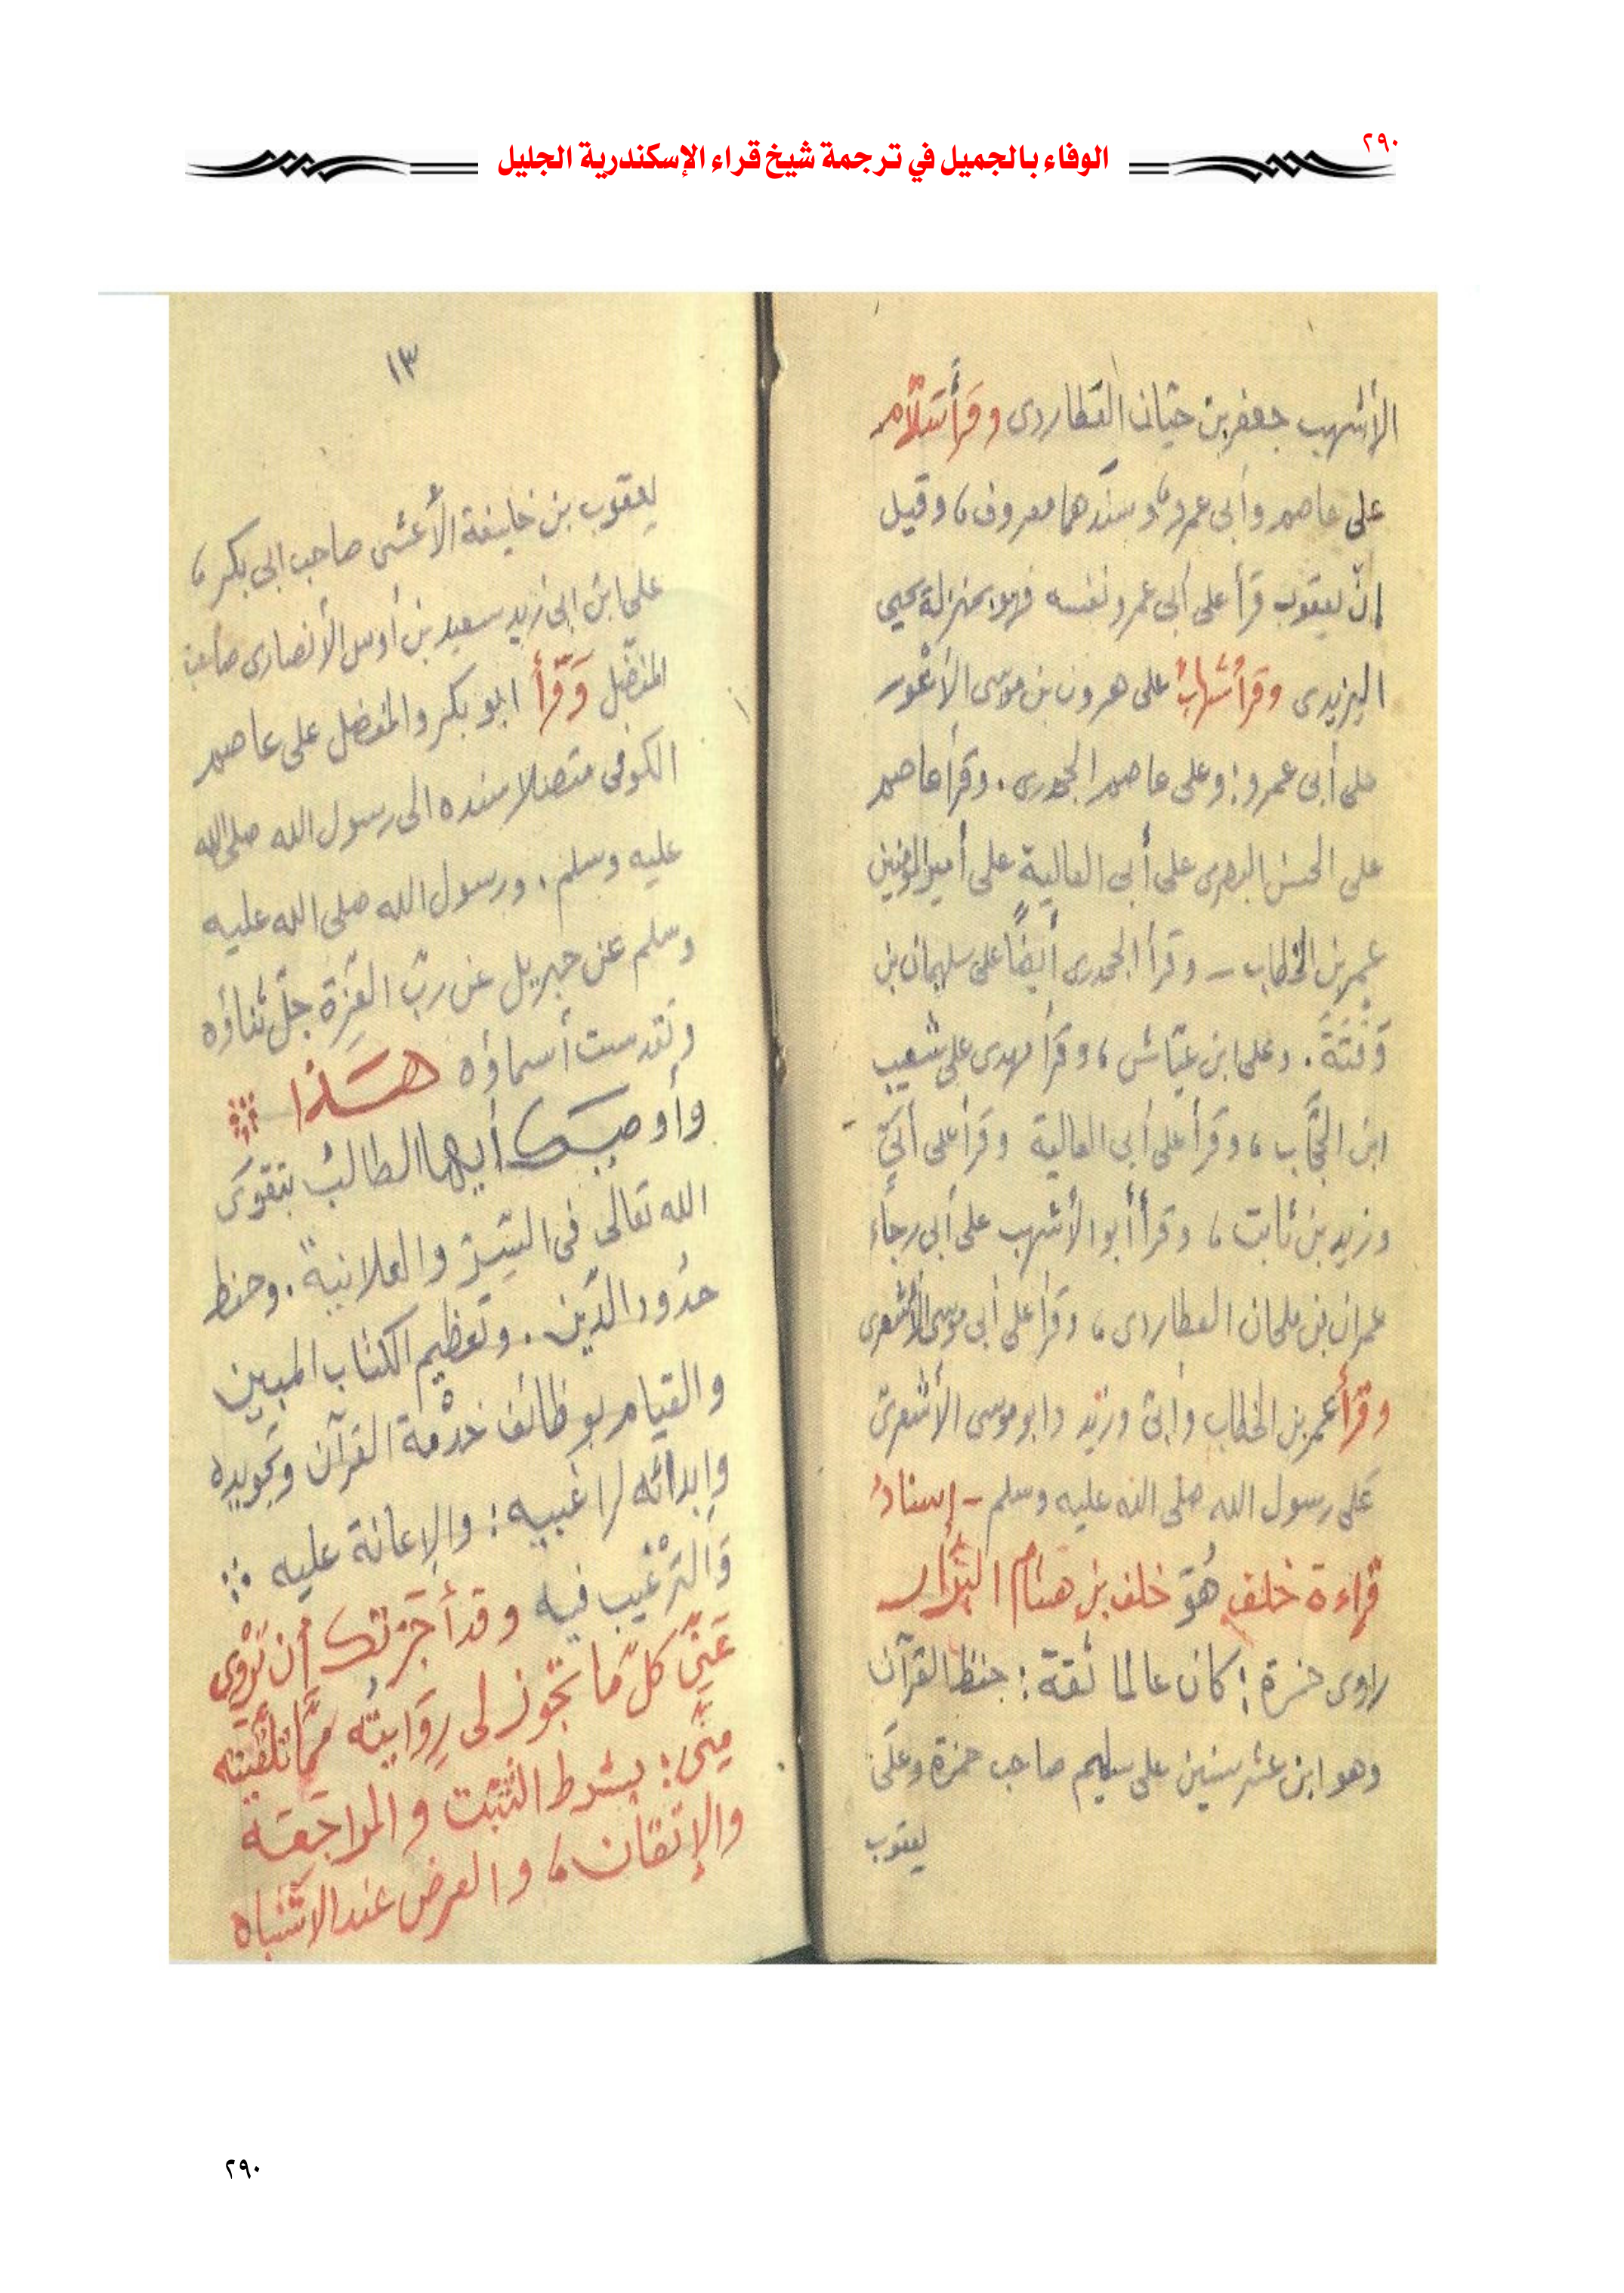 ٢٩٠
الوفاء بالجميل في ترجمة شيخ قراء الإسكندرية الجليل
الأشهب جعفر بن حيّان العطاردى وقرأ سَلّام
على عاصم وأبى عمرو، وسندهما معروف، وقيل
إنّ يعقوب قرأ على أبى عمرو نفسه فهو بمنزلة يحيى
اليزيدى وقرأ شهابٌ على هرون بن موسى الأعْور
على أبى عمرو: وعلى عاصم الجحدرى. وقرأ عاصم
على الحسن البصرى على أبى العالية على أمير المؤمنين
عمر بن الخطاب - وقرأ الجحدرى أيضًا على سليمان بن
قَتَّةَ. وعلى ابن عيّاش، وقرأ مهدى على شعيب
ابن الحَجاب، وقرأ على أبى العالية وقرأ على أُبَيّ
وزيد بن ثابت، وقرأ أبو الأشهب على أبى رجاء
عمران بن ملحان العطاردى، وقرأ على أبى موسى الأشعرى
وقرَأ عمر بن الخطاب وأبىّ وزيْد وابو موسى الأشعرىّ
عَلى رسول الله صلى الله عليه وسلم - إسنادُ
قراءة خلف هُوَ خلف بن هشام البَزّار
راوى حمزة: كان عالما ثقة: حفظ القرآن
وهو ابن عشر سنين على سليم صاحب حمزة وعلَى
يعقوب
١٣
يعقوب بن خليفة الأعشى صاحب ابى بكر،
على ابن ابى زيد سعيد بن أوس الأنصارى صاحب
المفضّل وَقَرَأَ ابو بكر والمفضل على عاصم
الكوفى متصلا سنده الى رسول الله صلى الله
عليه وسلم. ورسول الله صلى الله عليه
وسلم عن جبريل عن ربّ العِزة جلّ ثناؤه
وتقدست أسماؤه هَذا
وأوصيك أيها الطالبُ بتقوى
الله تعالى فى السِّرّ والعلانية. وحفظ
حدُود الدّين. وتعظيم الكتاب المبين
والقيام بوظائف خدْمة القرآن وتجويده
وإبدائه لراغبيه: والإعانة عليه
وَالتَرْغيب فيه وقد أجَزْتك أن تَرْوِى
عَنّى كلّ ما تجُوز لى رِوَايتُه مِمَّا تلقّيته
مِنّى: بشرط التثبّت والمراجَعَة
والإتقان، والعرض عند الاشتباه
٢٩٠